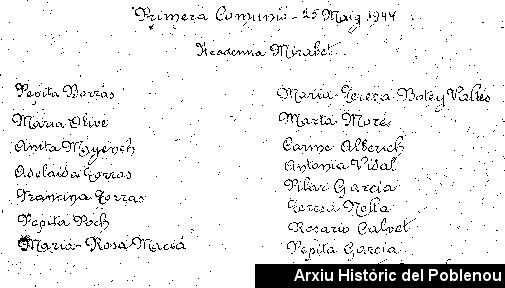 Primera Comunió - 25 Maig 1944
Academia Mirabet
Pepita Borràs
Maria Olivé
Anita
Adelaida Torras
Francina Torras
Pepita Poch
Maria-Rosa Macià
Maria-Teresa Botey Vallés
Marta Morés
Carme Alberich
Antonia Vidal
Pilar Garcia
Teresa Nolla
Rosario Calvet
Pepita Garcia
Arxiu Històric del Poblenou